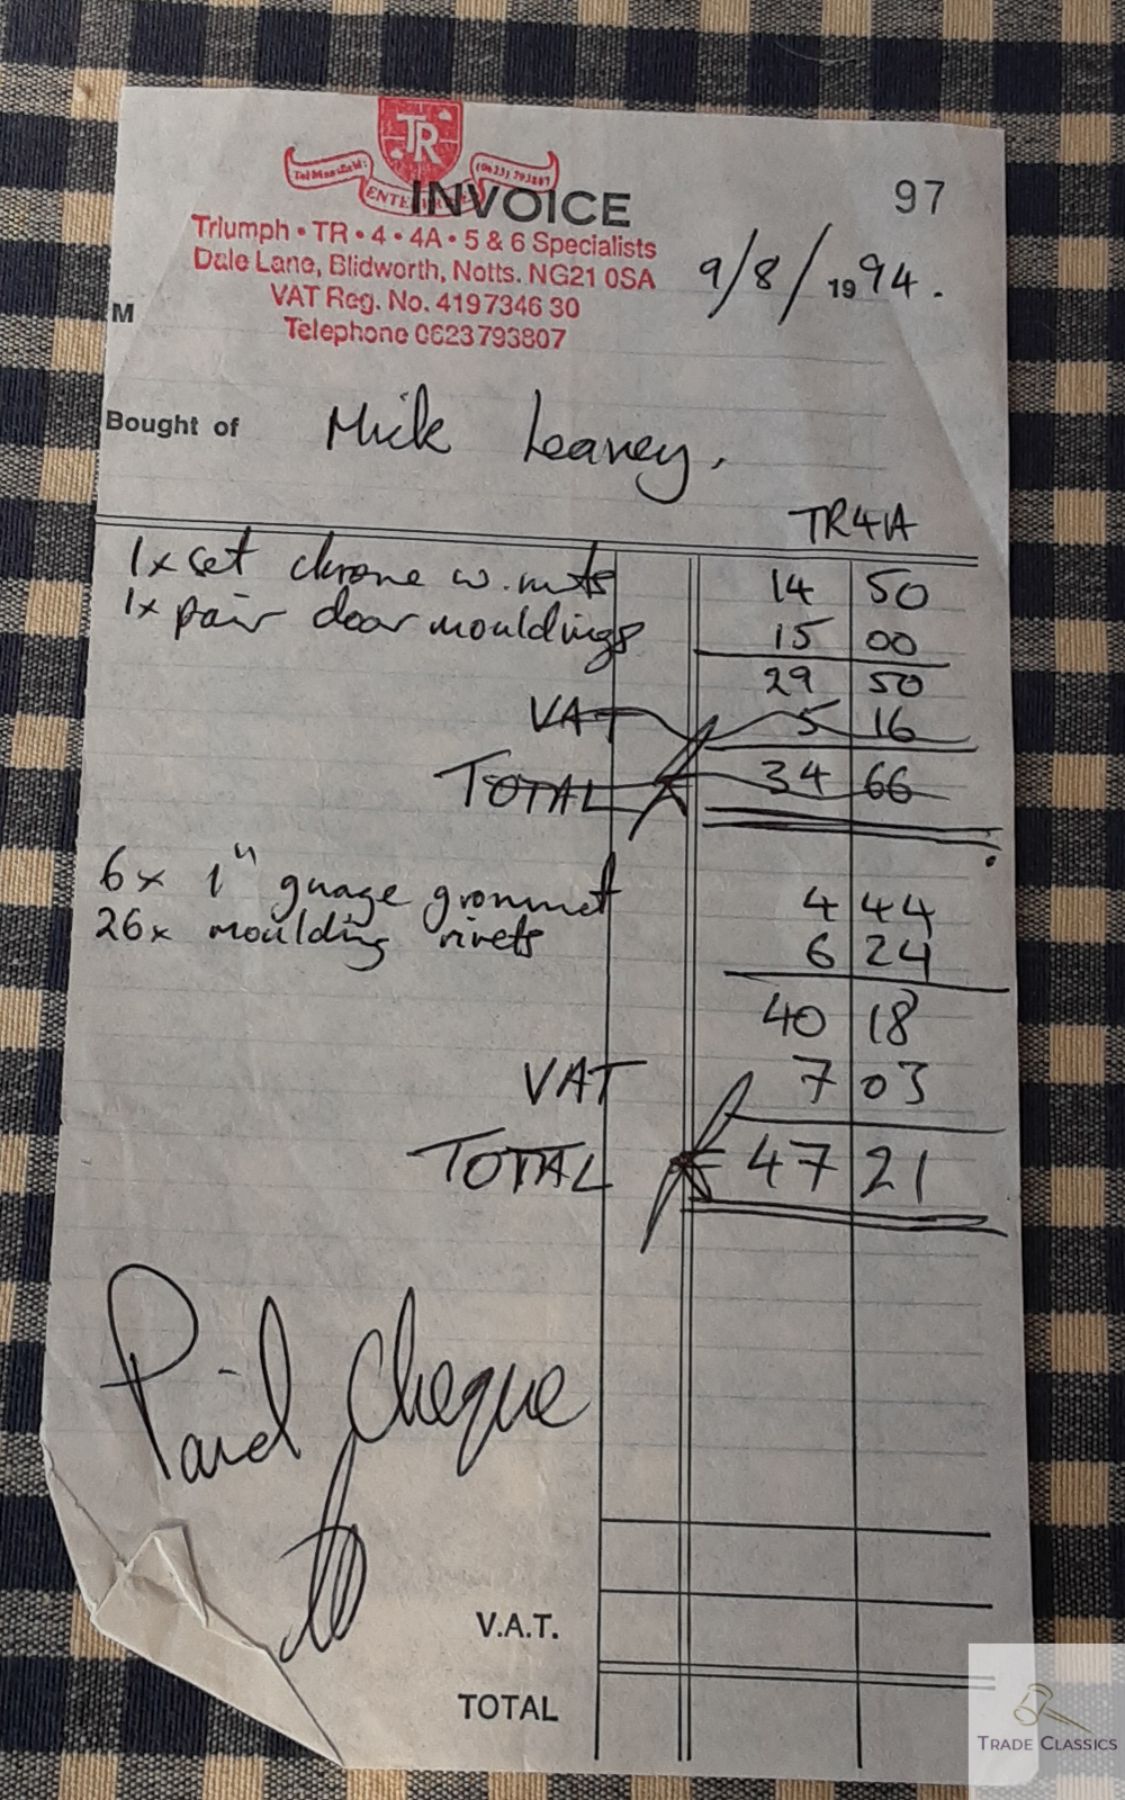 TR
Tel Mansfield: (0623) 793807
INVOICE
97
Triumph • TR • 4 • 4A • 5 & 6 Specialists
Dale Lane, Blidworth, Notts. NG21 0SA
9/8/1994.
VAT Reg. No. 4197346 30
M
Telephone 0623793807
Bought of Mick Leaney.
TR4A
1x set chrome w. nuts 14 50
1x pair door mouldings 15 00
29 50
VAT 5 16
TOTAL 34 66
6x 1" guage grommet 4 44
26x moulding rivets 6 24
40 18
VAT 7 03
TOTAL 47 21
Paid Cheque
V.A.T.
TOTAL
TRADE CLASSICS